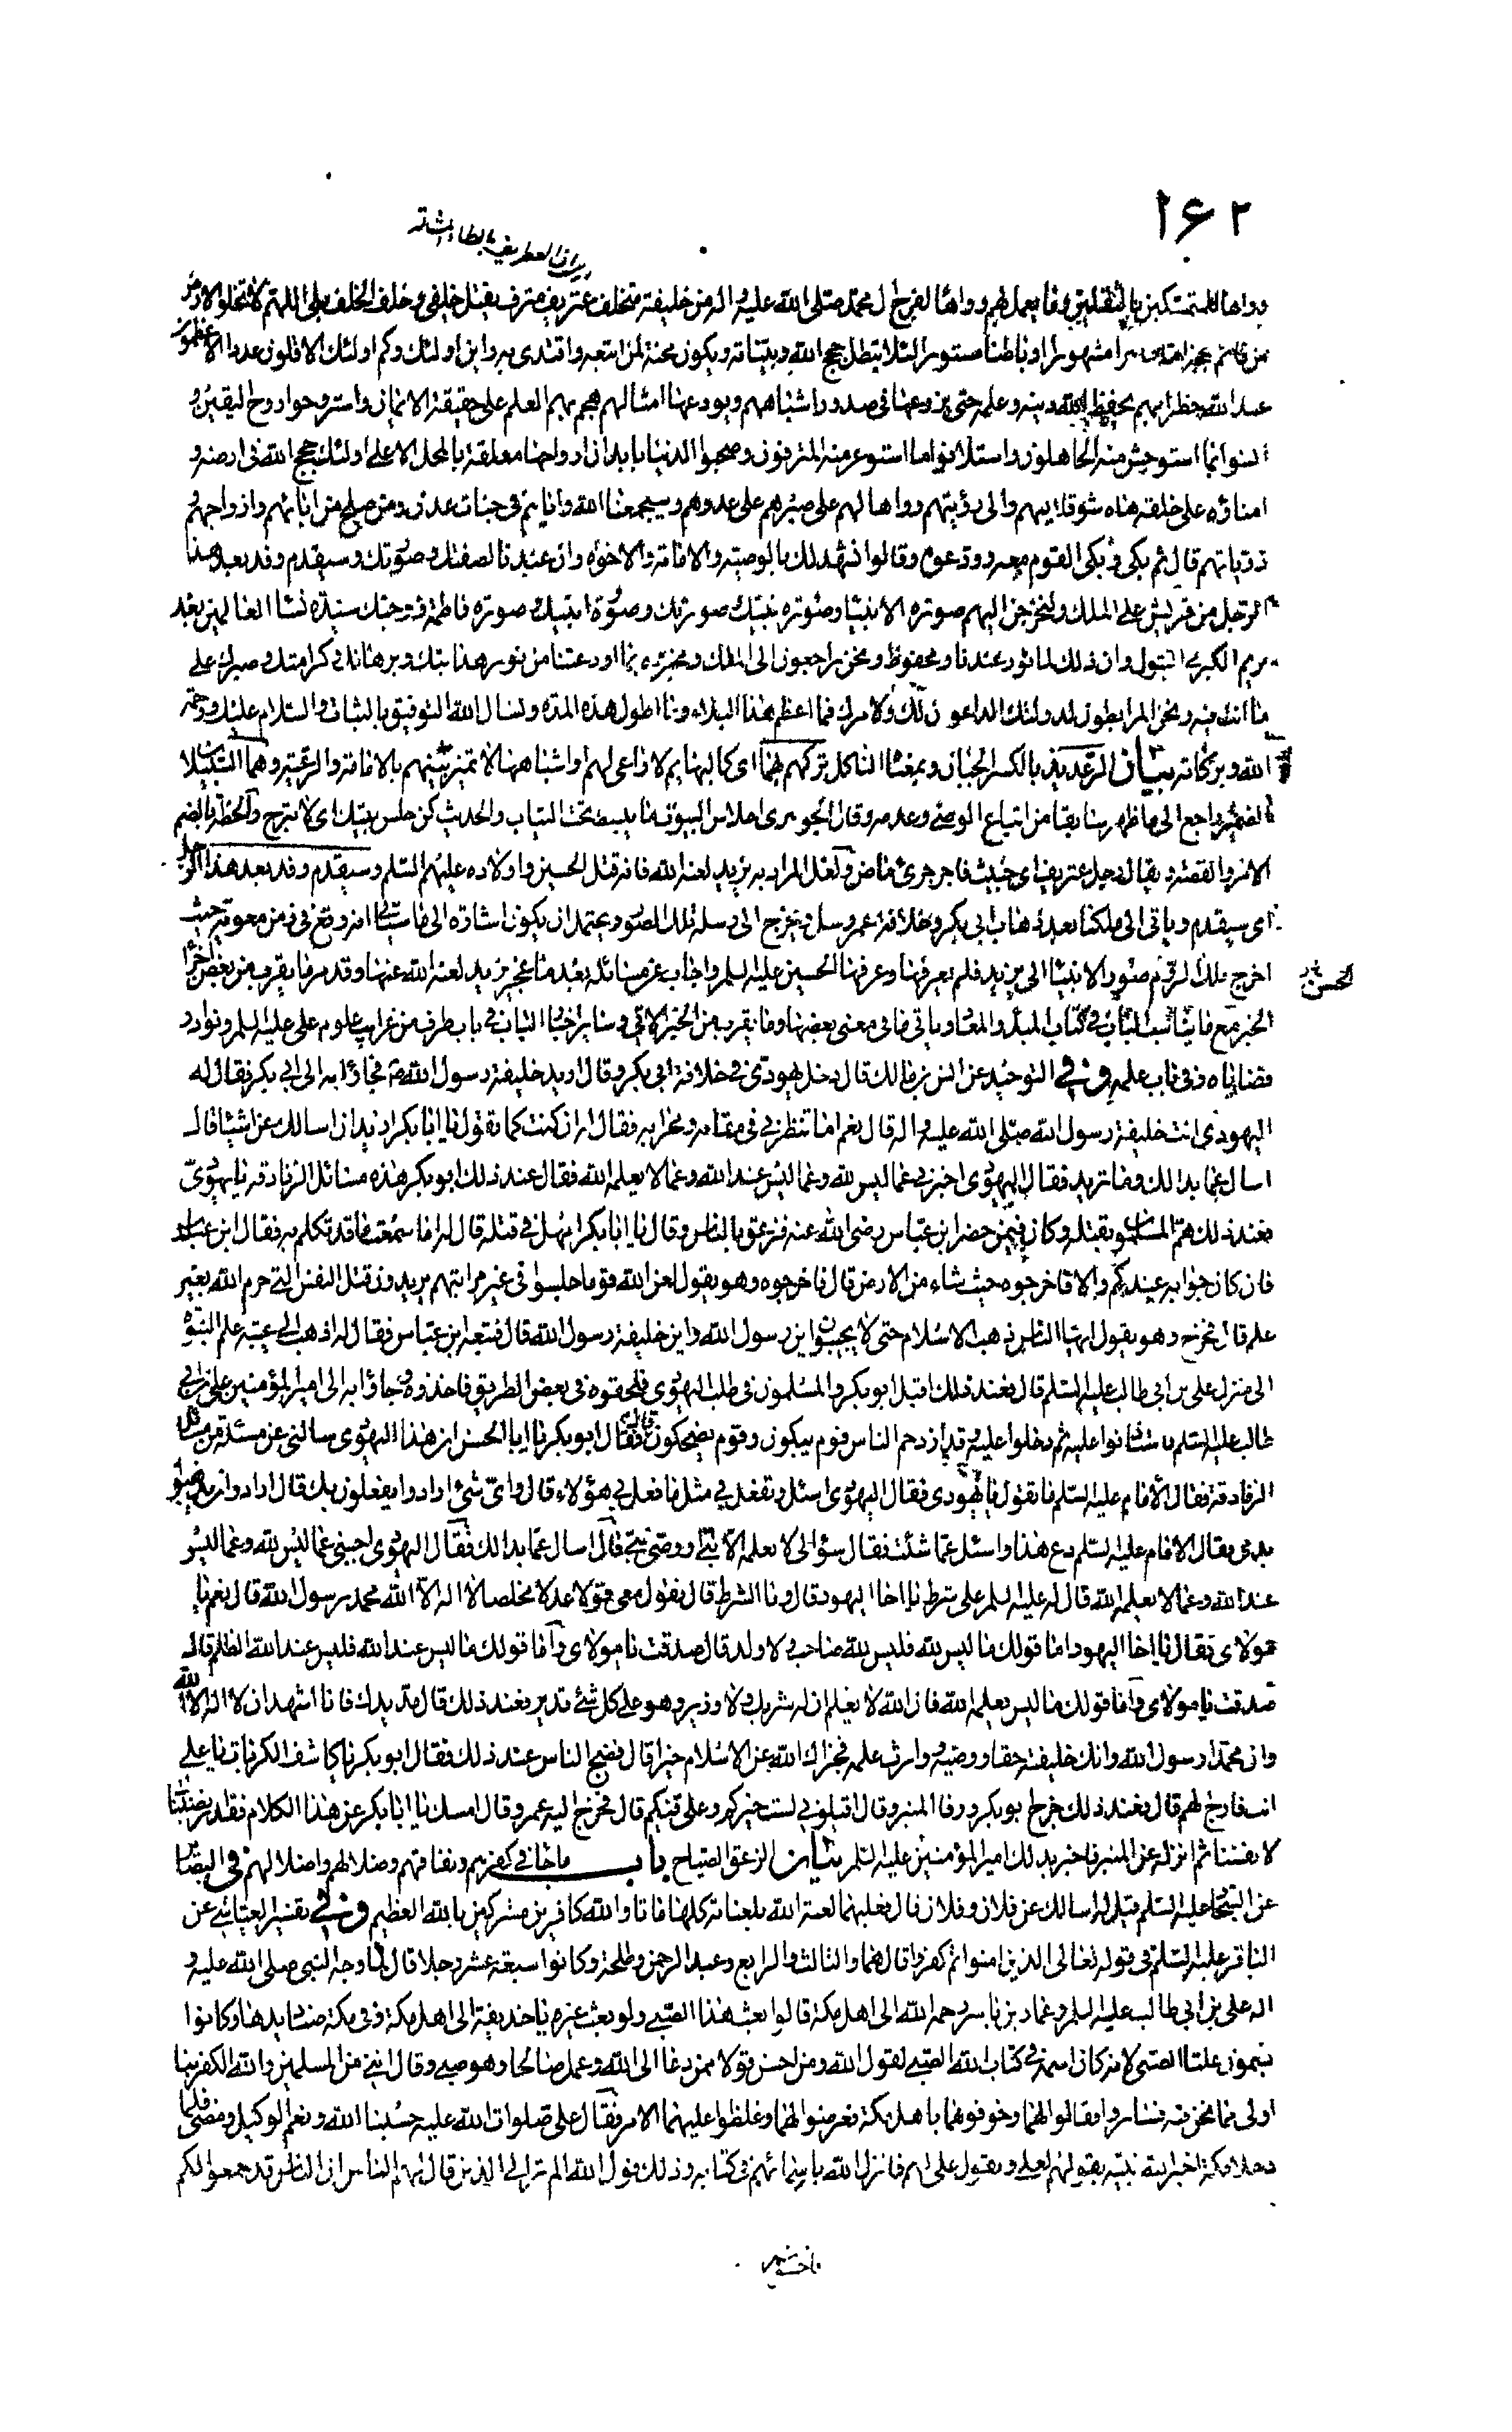 ۱۶۲
وواها للمتمسكين بالثقلين وما يعمل بهم وواها لفرخ ال محمد صلى الله عليه واله من خليفة متخلف عتريف مترف يقتل خلفي وخلف الخلف بلى اللهم لا تخلو الارض
من قائم بحجة اما ظاهرا مشهورا او باطنا مستورا لئلا يبطل حجج الله وبيناته ويكون محنة لمن اتبعه واقتدى به واين اولئك وكم اولئك الاقلون عددا الاعظمون
عند الله خطرا بهم يحفظ الله دينه وعلمه حتى يزرعها في صدور اشباههم ويودعها امثالهم هجم بهم العلم على حقيقة الايمان واستروحوا روح اليقين و
انسوا بما استوحش منه الجاهلون واستلانوا ما استوعر منه المترفون وصحبوا الدنيا بابدان ارواحها معلقة بالمحل الاعلى اولئك حجج الله في ارضه و
امناؤه على خلقه هاه شوقا اليهم والى رؤيتهم وواها لهم على صبرهم على عدوهم وسيجمعنا الله واياهم في جنات عدن ومن صلح من ابائهم وازواجهم
ذرياتهم قال ثم بكى وبكى القوم معه ودعوه وقالوا نشهد لك بالوصية والامامة والاخوة وان عندنا لصفتك وصورتك وسيقدم وفد بعد هذا
الرجل من قريش على الملك وليخرجن اليهم صورة الانبيا وصورة نبيك وصورتك وصورة ابنيك وصورة فاطمة زوجتك سيدة نسا العالمين بعد
مريم الكبرى البتول وان ذلك لماثور عندنا ومحفوظ ونحن راجعون الى الملك ومخبروه بما اودعتنا من نور هدايتك وبرهانك وكرامتك وصبرك على
ما انت فيه ونحن المرابطون لدولتك الداعون لك ولامرك فما اعظم هذا البلاء وما اطول هذه المدة ونسال الله التوفيق بالثبات والسلام عليك ورحمة
الله وبركاته بيان الرعديد بالكسر الجبان وبمعنا الناكل تركهم بهما اى كالبهايم لا راعى لهم واشباهها لا تميز بينهم بالامامة والرعية وهما
الضمير راجع الى ما ظهر سابقا من اتباع الوصي وعدمه وقال الجوهرى احلاس البيوت ما يبسط تحت الثياب والحديث كن حلس بيتك اى لا تبرح والخطة بالضم
الامر والقصة ويقال رجل عتريف اى خبيث فاجر جرئ ماض ولعل المراد به يزيد لعنه الله فانه قتل الحسين واولاده عليهم السلم وسيقدم وفد بعد هذا الرجل
اى سيقدم وياتى الى ملكنا بعد ذهاب ابي بكر وخلافة عمر رسل ويخرج الى رسله تلك الصور ويحتمل ان يكون اشارة الى ما سيأتي انه وقع في زمن معوية حيث
اخرج ملك الروم صور الانبيا الى يزيد فلم يعرفها وعرفها الحسين عليه السلم واجاب عن مسائله بعد ما عجز يزيد لعنه الله عنها وقد مر ما يقرب من بعض اجزا
الخبر مع ما يناسب الباب في كتاب المبدا والمعاد وياتى ما في معنى بعضها وما يقرب من الخبر الاتي وساير اخبار الباب في باب طرف من غرايب علوم على عليه السلم ونوادر
قضاياه وفي باب علمه وفي التوحيد عن انس بن مالك قال دخل يهودي في خلافة ابي بكر وقال اريد خليفة رسول الله ص فجاؤا به الى ابي بكر فقال له
اليهودي انت خليفة رسول الله صلى الله عليه واله قال نعم اما تنظرني في مقامه ومحرابه فقال له ان كنت كما تقول يا ابا بكر اريد ان اسالك عن اشيا قال
اسال عما بدا لك وما تريد فقال اليهودي اخبرني عما ليس لله وعما ليس عند الله وعما لا يعلمه الله فقال عند ذلك ابو بكر هذه مسائل الزنادقة يا يهودي
فعند ذلك هم المسلمون بقتله وكان فيمن حضر ابن عباس رضي الله عنه فزعق بالناس وقال يا ابا بكر امهل في قتله قال له اما سمعت ما قد تكلم به فقال ابن عباس
فان كان جوابه عندكم والا فاخرجوه حيث شاء من الارض قال فاخرجوه وهو يقول لعن الله قوما جلسوا في غير مراتبهم يريدون قتل النفس التي حرم الله بغير
علم قال فخرج وهو يقول ايها الناس ذهب الاسلام حتى لا يجيبون اين رسول الله واين خليفة رسول الله قال فتبعه ابن عباس فقال له اذهب الى عيبة علم النبوة
الى منزل على بن ابي طالب عليه السلم قال فعند ذلك اقبل ابو بكر والمسلمون في طلب اليهودي فلحقوه في بعض الطريق فاخذوه وجاؤا به الى امير المؤمنين على بن ابي
طالب عليه السلم فاستاذنوا عليه ثم دخلوا عليه وقد ازدحم الناس قوم يبكون وقوم يضحكون قال فقال ابو بكر يا ابا الحسن ان هذا اليهودي سالني عن مسئلة من مسائل
الزنادقة فقال الامام عليه السلم ما تقول يا يهودي فقال اليهودي اسئل وتفعل بي مثل ما فعل بي هؤلاء قال واي شئ ارادوا يفعلون بك قال ارادوا ان يذهبوا
بدمى فقال الامام عليه السلم دع هذا واسئل عما شئت فقال سؤالي لا يعلمه الا نبي او وصي نبي قال اسال عما بدا لك فقال اليهودي اجبني عما ليس لله وعما ليس
عند الله وعما لا يعلمه الله قال له عليه السلم على شرط يا اخا اليهود قال وما الشرط قال تقول معى قولا عدلا مخلصا لا اله الا الله محمد رسول الله قال نعم يا
مولاى فقال يا اخا اليهود اما قولك ما ليس لله فليس لله صاحبة ولا ولد قال صدقت يا مولاى واما قولك ما ليس عند الله فليس عند الله الظلم قال
صدقت يا مولاى واما قولك ما ليس يعلمه الله فان الله لا يعلم ان له شريك ولا وزير وهو على كل شئ قدير فعند ذلك قال مد يدك فانا اشهد ان لا اله الا الله
وان محمدا رسول الله وانك خليفته حقا ووصيه ووارث علمه فجزاك الله عن الاسلام خيرا قال فضج الناس عند ذلك فقال ابو بكر يا كاشف الكربات يا على
انت فارج الهم قال فعند ذلك خرج ابو بكر ورقا المنبر وقال اقيلوني لست بخيركم وعلي فيكم قال فخرج اليه عمر وقال امسك يا ابا بكر عن هذا الكلام فقد رضيناك
لانفسنا ثم انزله عن المنبر فاخبر بذلك امير المؤمنين عليه السلم بيان الزعق الصياح باب ما جا في كفرهم ونفاقهم وضلالهم واضلالهم في البصائر
عن السجاد عليه السلم قيل له اسالك عن فلان وفلان قال فعليهما لعنة الله بلعناته كلها ماتا والله كافرين مشركين بالله العظيم وفي تفسير العياشي عن
الباقر عليه السلم في قوله تعالى الذين امنوا ثم كفروا قال هما والثالث والرابع وعبد الرحمن وطلحة وكانوا سبعة عشر رجلا قال لما وجه النبي صلى الله عليه و
اله على بن ابي طالب عليه السلم وعمار بن ياسر رحمه الله الى اهل مكة قالوا بعث هذا الصبي ولو بعث غيره يا حذيفة الى اهل مكة وفي مكة صناديدها وكانوا
يسمون عليا الصبي لانه كان اسمه في كتاب الله الصبي لقول الله ومن احسن قولا ممن دعا الى الله وعمل صالحا وهو صبي وقال انني من المسلمين والله الكفر بنا
اولى مما نحن فيه فساروا فقالوا لهما وخوفوهما باهل مكة فعرضوا لهما وغلظوا عليهما الامر فقال على صلوات الله عليه حسبنا الله ونعم الوكيل ومضى فلما
دخلا مكة اخبر الله نبيه بقولهم لعلى وبقول على لهم فانزل الله باسمائهم في كتابه وذلك قول الله الم تر الى الذين قال لهم الناس ان الناس قد جمعوا لكم